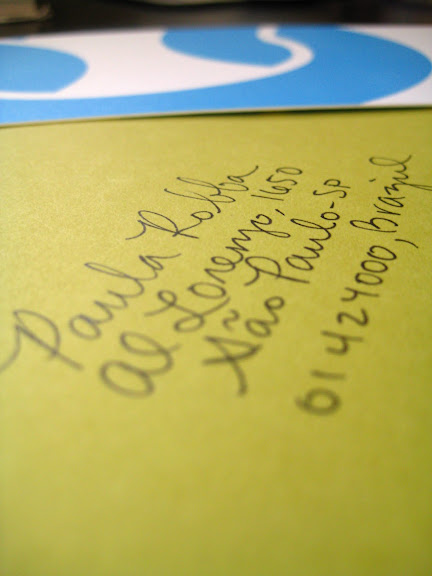 Paula Robba
Al Lorenzo, 1650
São Paulo-SP
01424000, Brazil